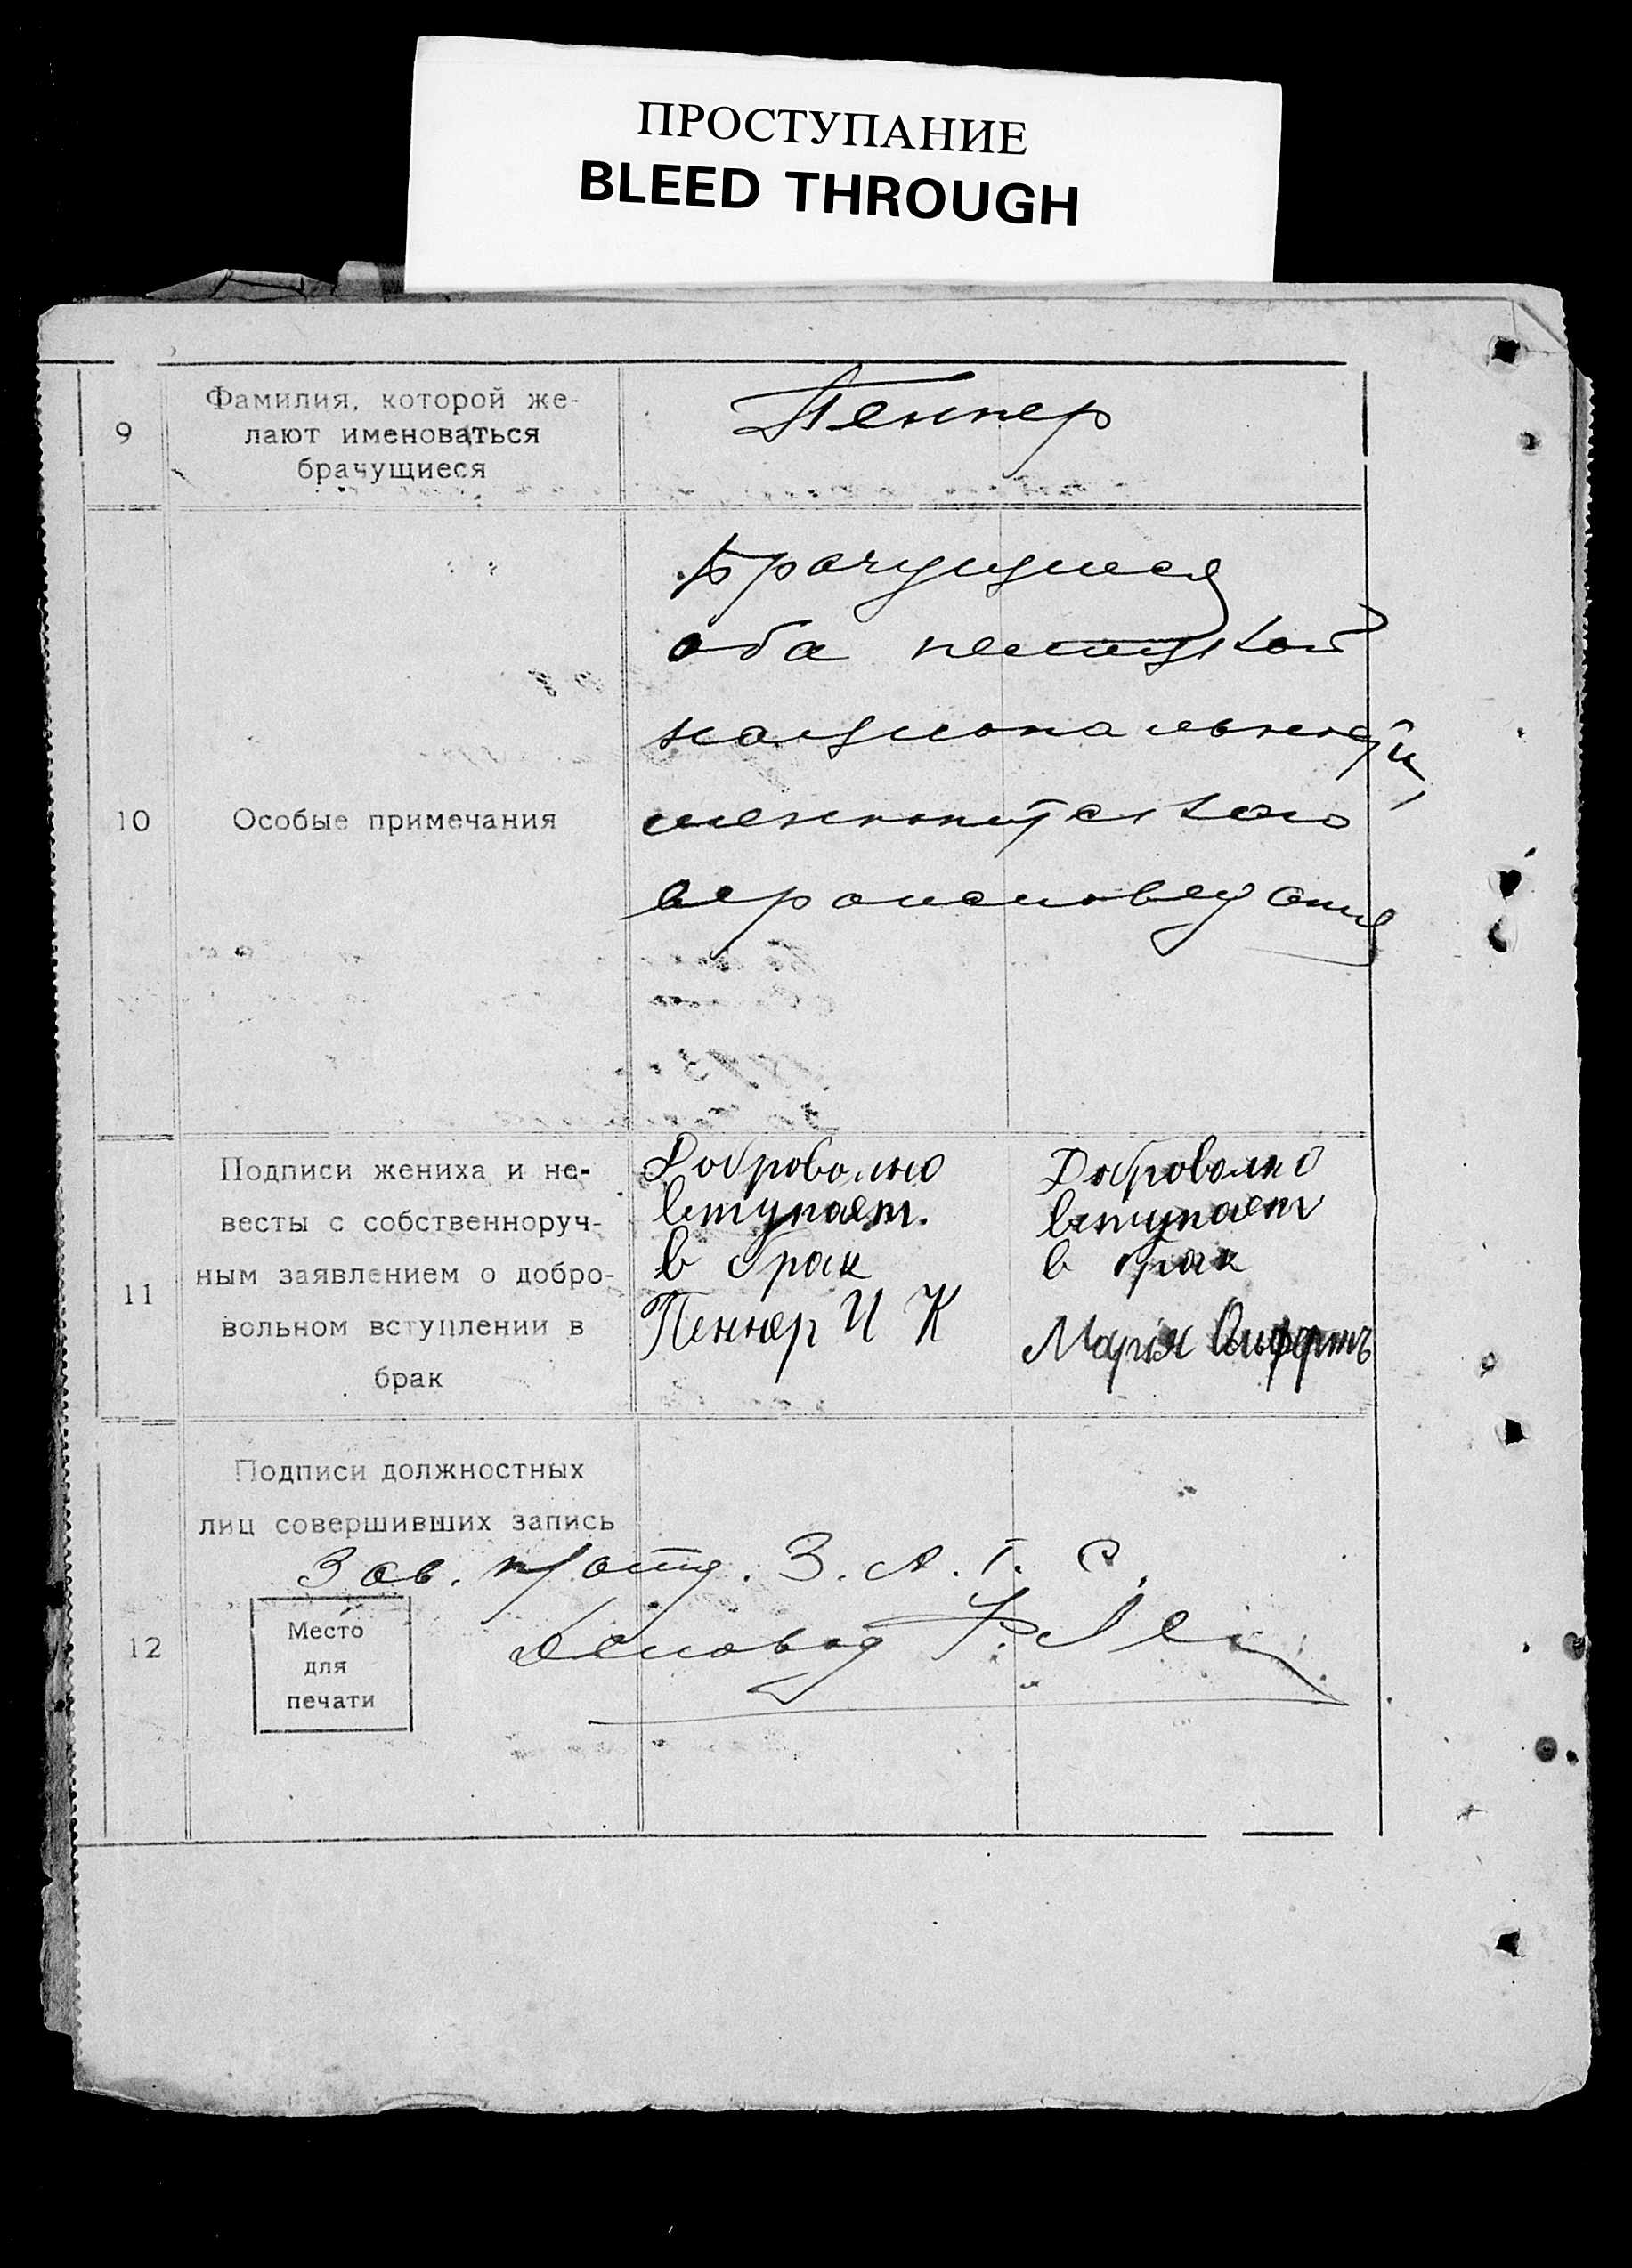 ПРОСТУПАНИЕ
BLEED THROUGH
9
Фамилия, которой же-
лают именоваться
брачущиеся
Пеннер
10
Особые примечания
Брачущиеся
оба немецкой
национальной,
меннонитского
вероисповедания
11
Подписи жениха и не-
весты с собственноруч-
ным заявлением о добро-
вольном вступлении в
брак
Доброволно
вступает.
в брак
Пеннер И К
Доброволно
вступает
в брак
Марія
12
Подписи должностных
лиц совершивших запись
Зав. п/отд. З. А. Г. С.
Место
для
печати
Деловод